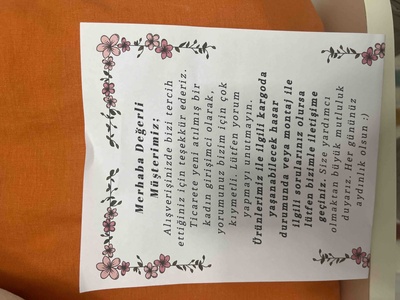 Merhaba Değerli
Müşterimiz;
Alışverişinizde bizi tercih
ettiğiniz için teşekkür ederiz.
Ticarete yeni atılmış bir
kadın girişimci olarak,
yorumunuz bizim için çok
kıymetli. Lütfen yorum
yapmayı unutmayın.
Ürünlerimiz ile ilgili kargoda
yaşanabilecek hasar
durumunda veya montaj ile
ilgili sorularınız olursa
lütfen bizimle iletişime
geçiniz. Size yardımcı
olmaktan büyük mutluluk
duyarız. Her gününüz
aydınlık olsun :)